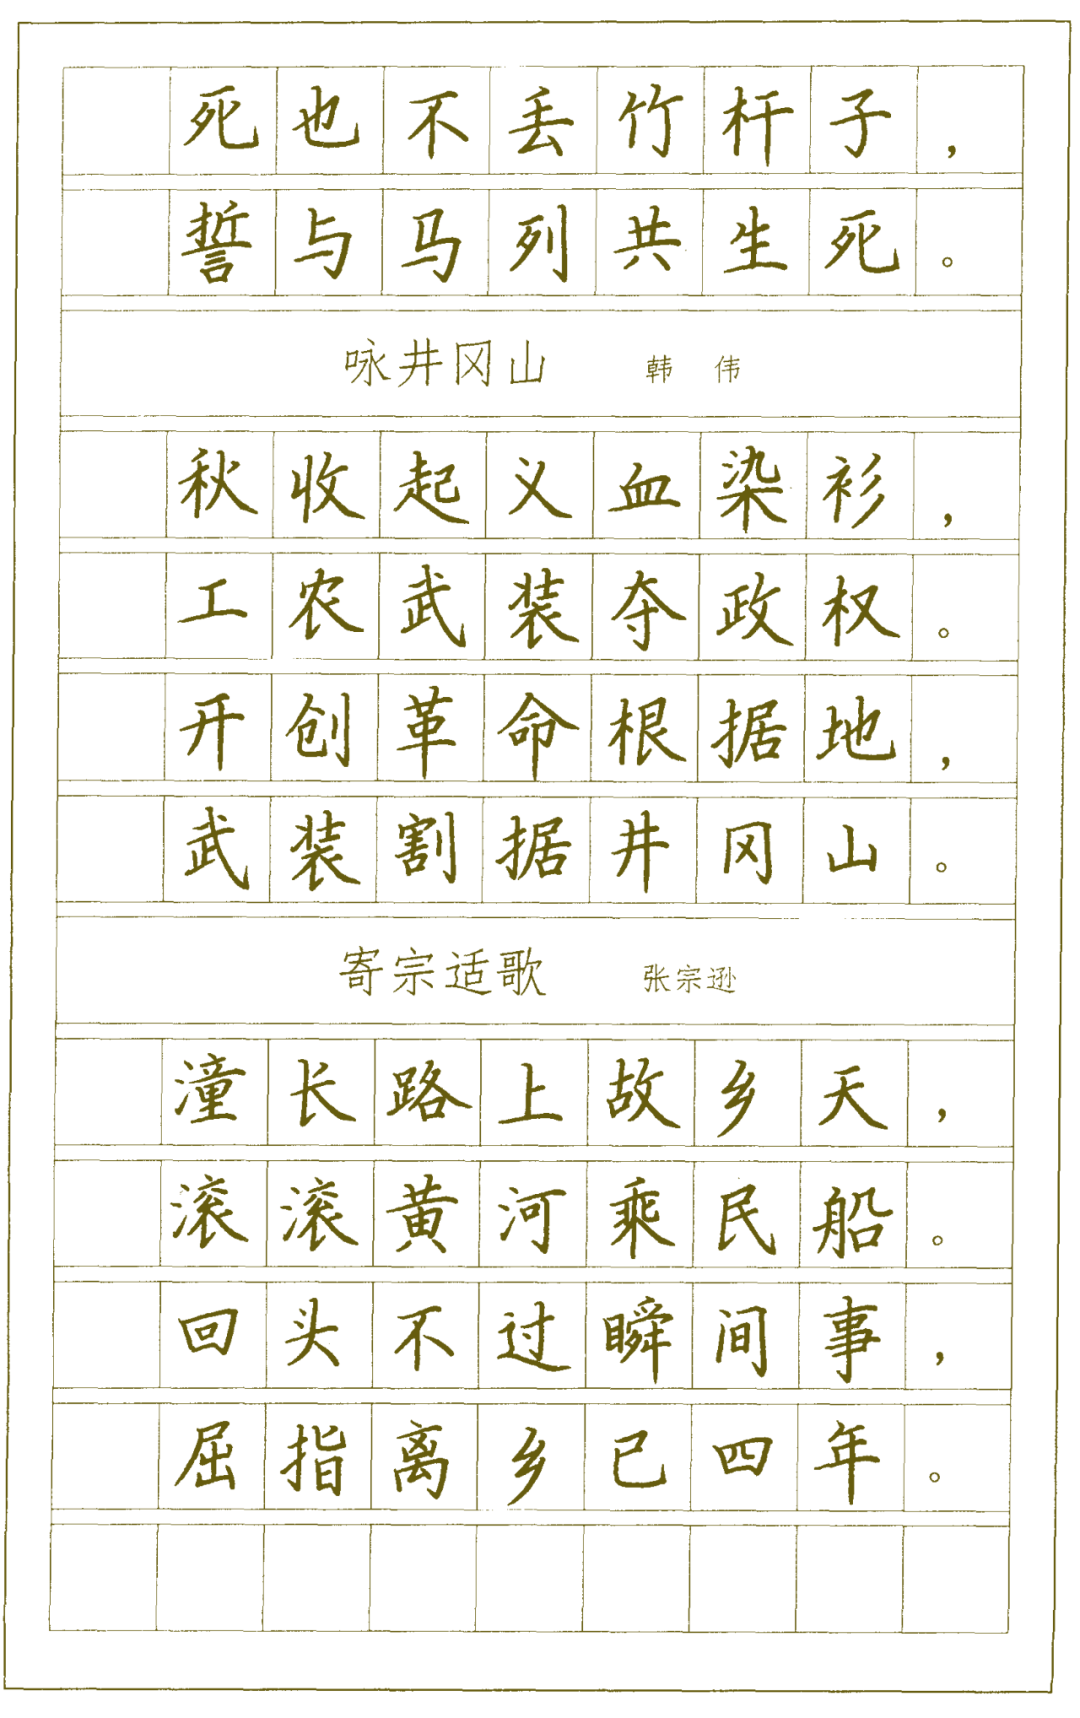 死也不丢竹杆子，
誓与马列共生死。
咏井冈山 韩伟
秋收起义血染衫，
工农武装夺政权。
开创革命根据地，
武装割据井冈山。
寄宗适歌 张宗逊
潼长路上故乡天，
滚滚黄河乘民船。
回头不过瞬间事，
屈指离乡已四年。